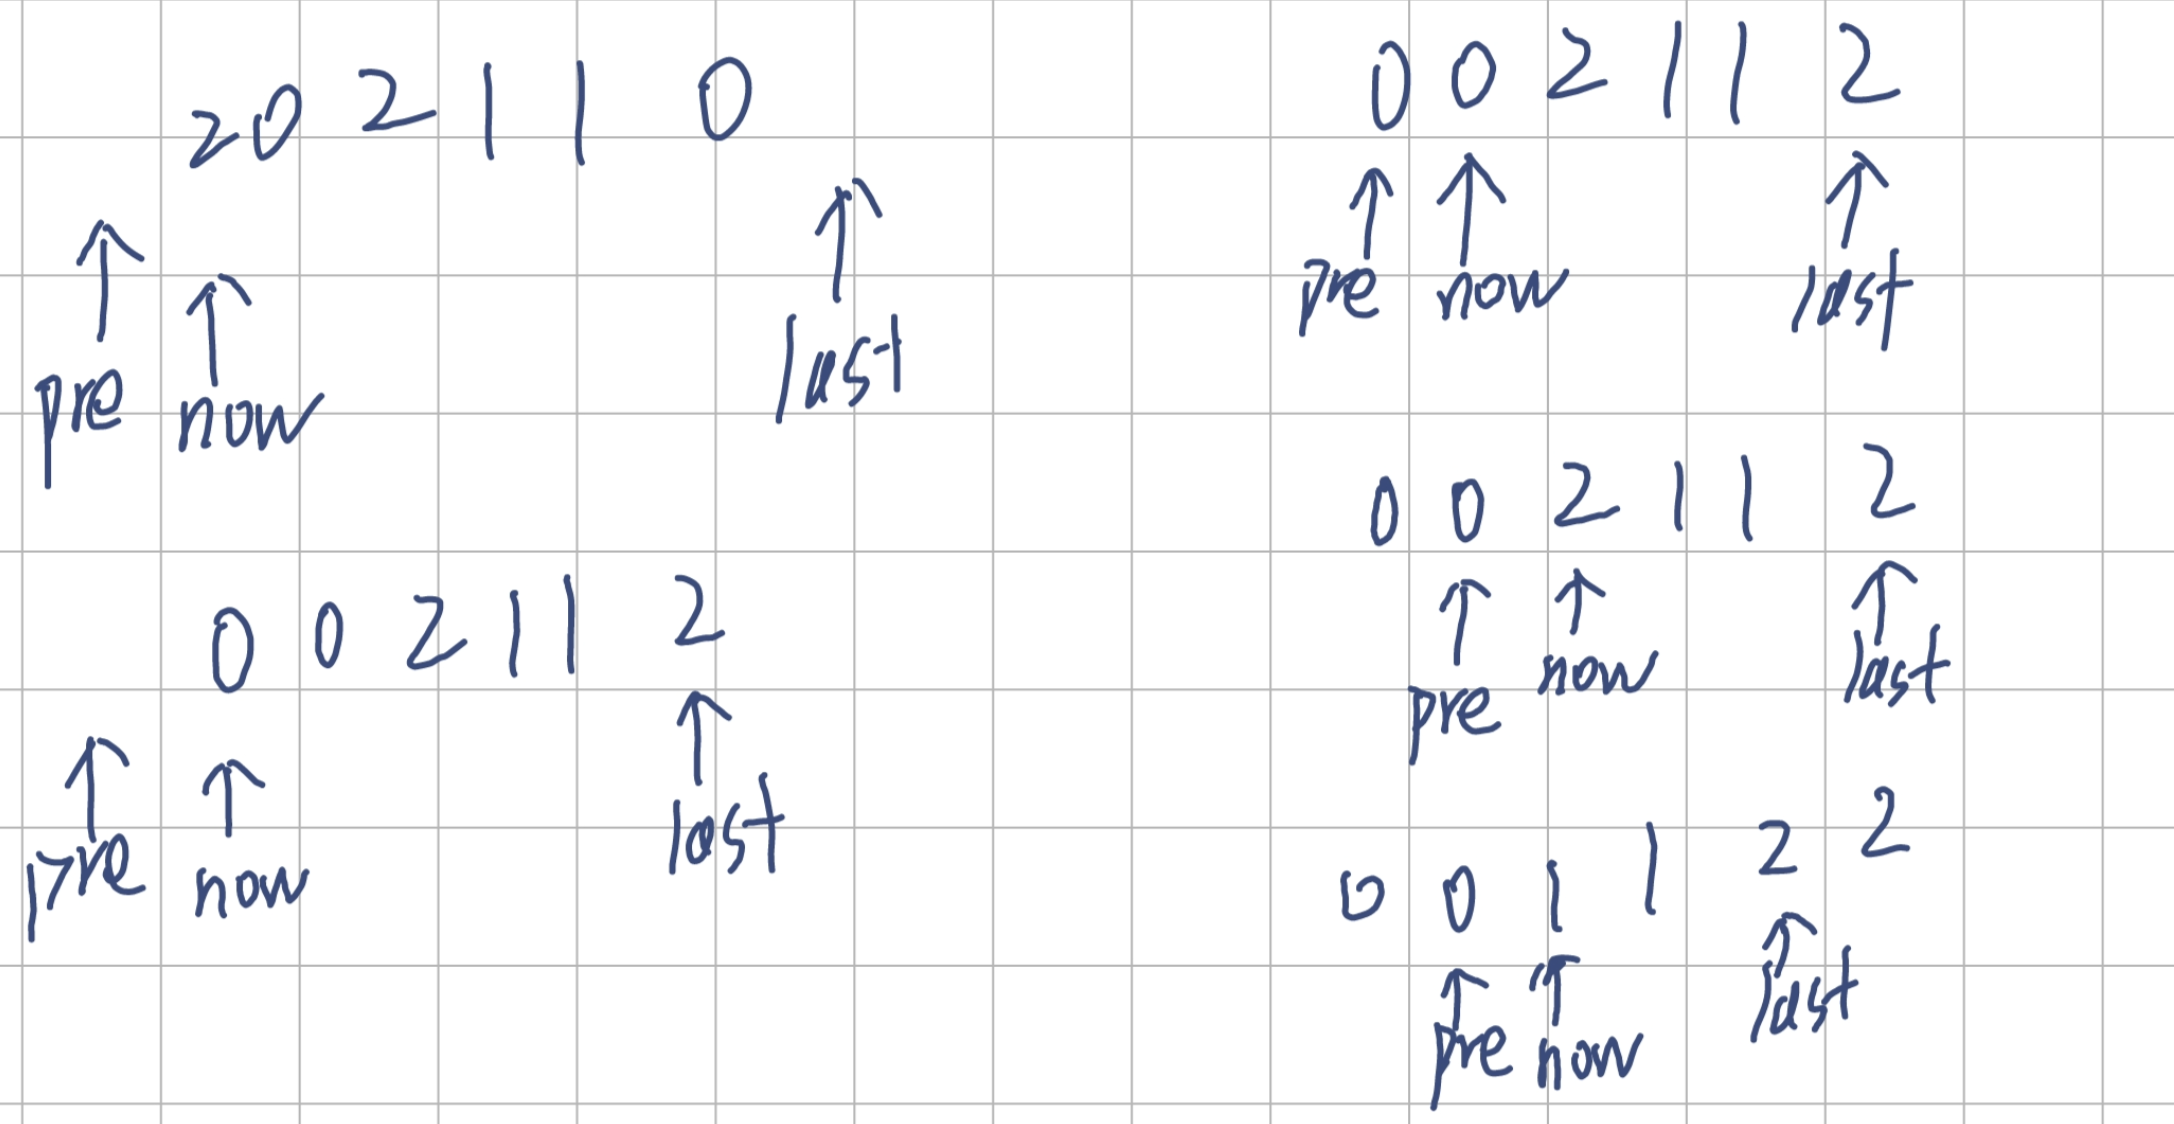 2 0 2 1 1 0
pre now last
0 0 2 1 1 2
pre now last
0 0 2 1 1 2
pre now last
0 0 2 1 1 2
pre now last
0 0 1 1 2 2
pre now last